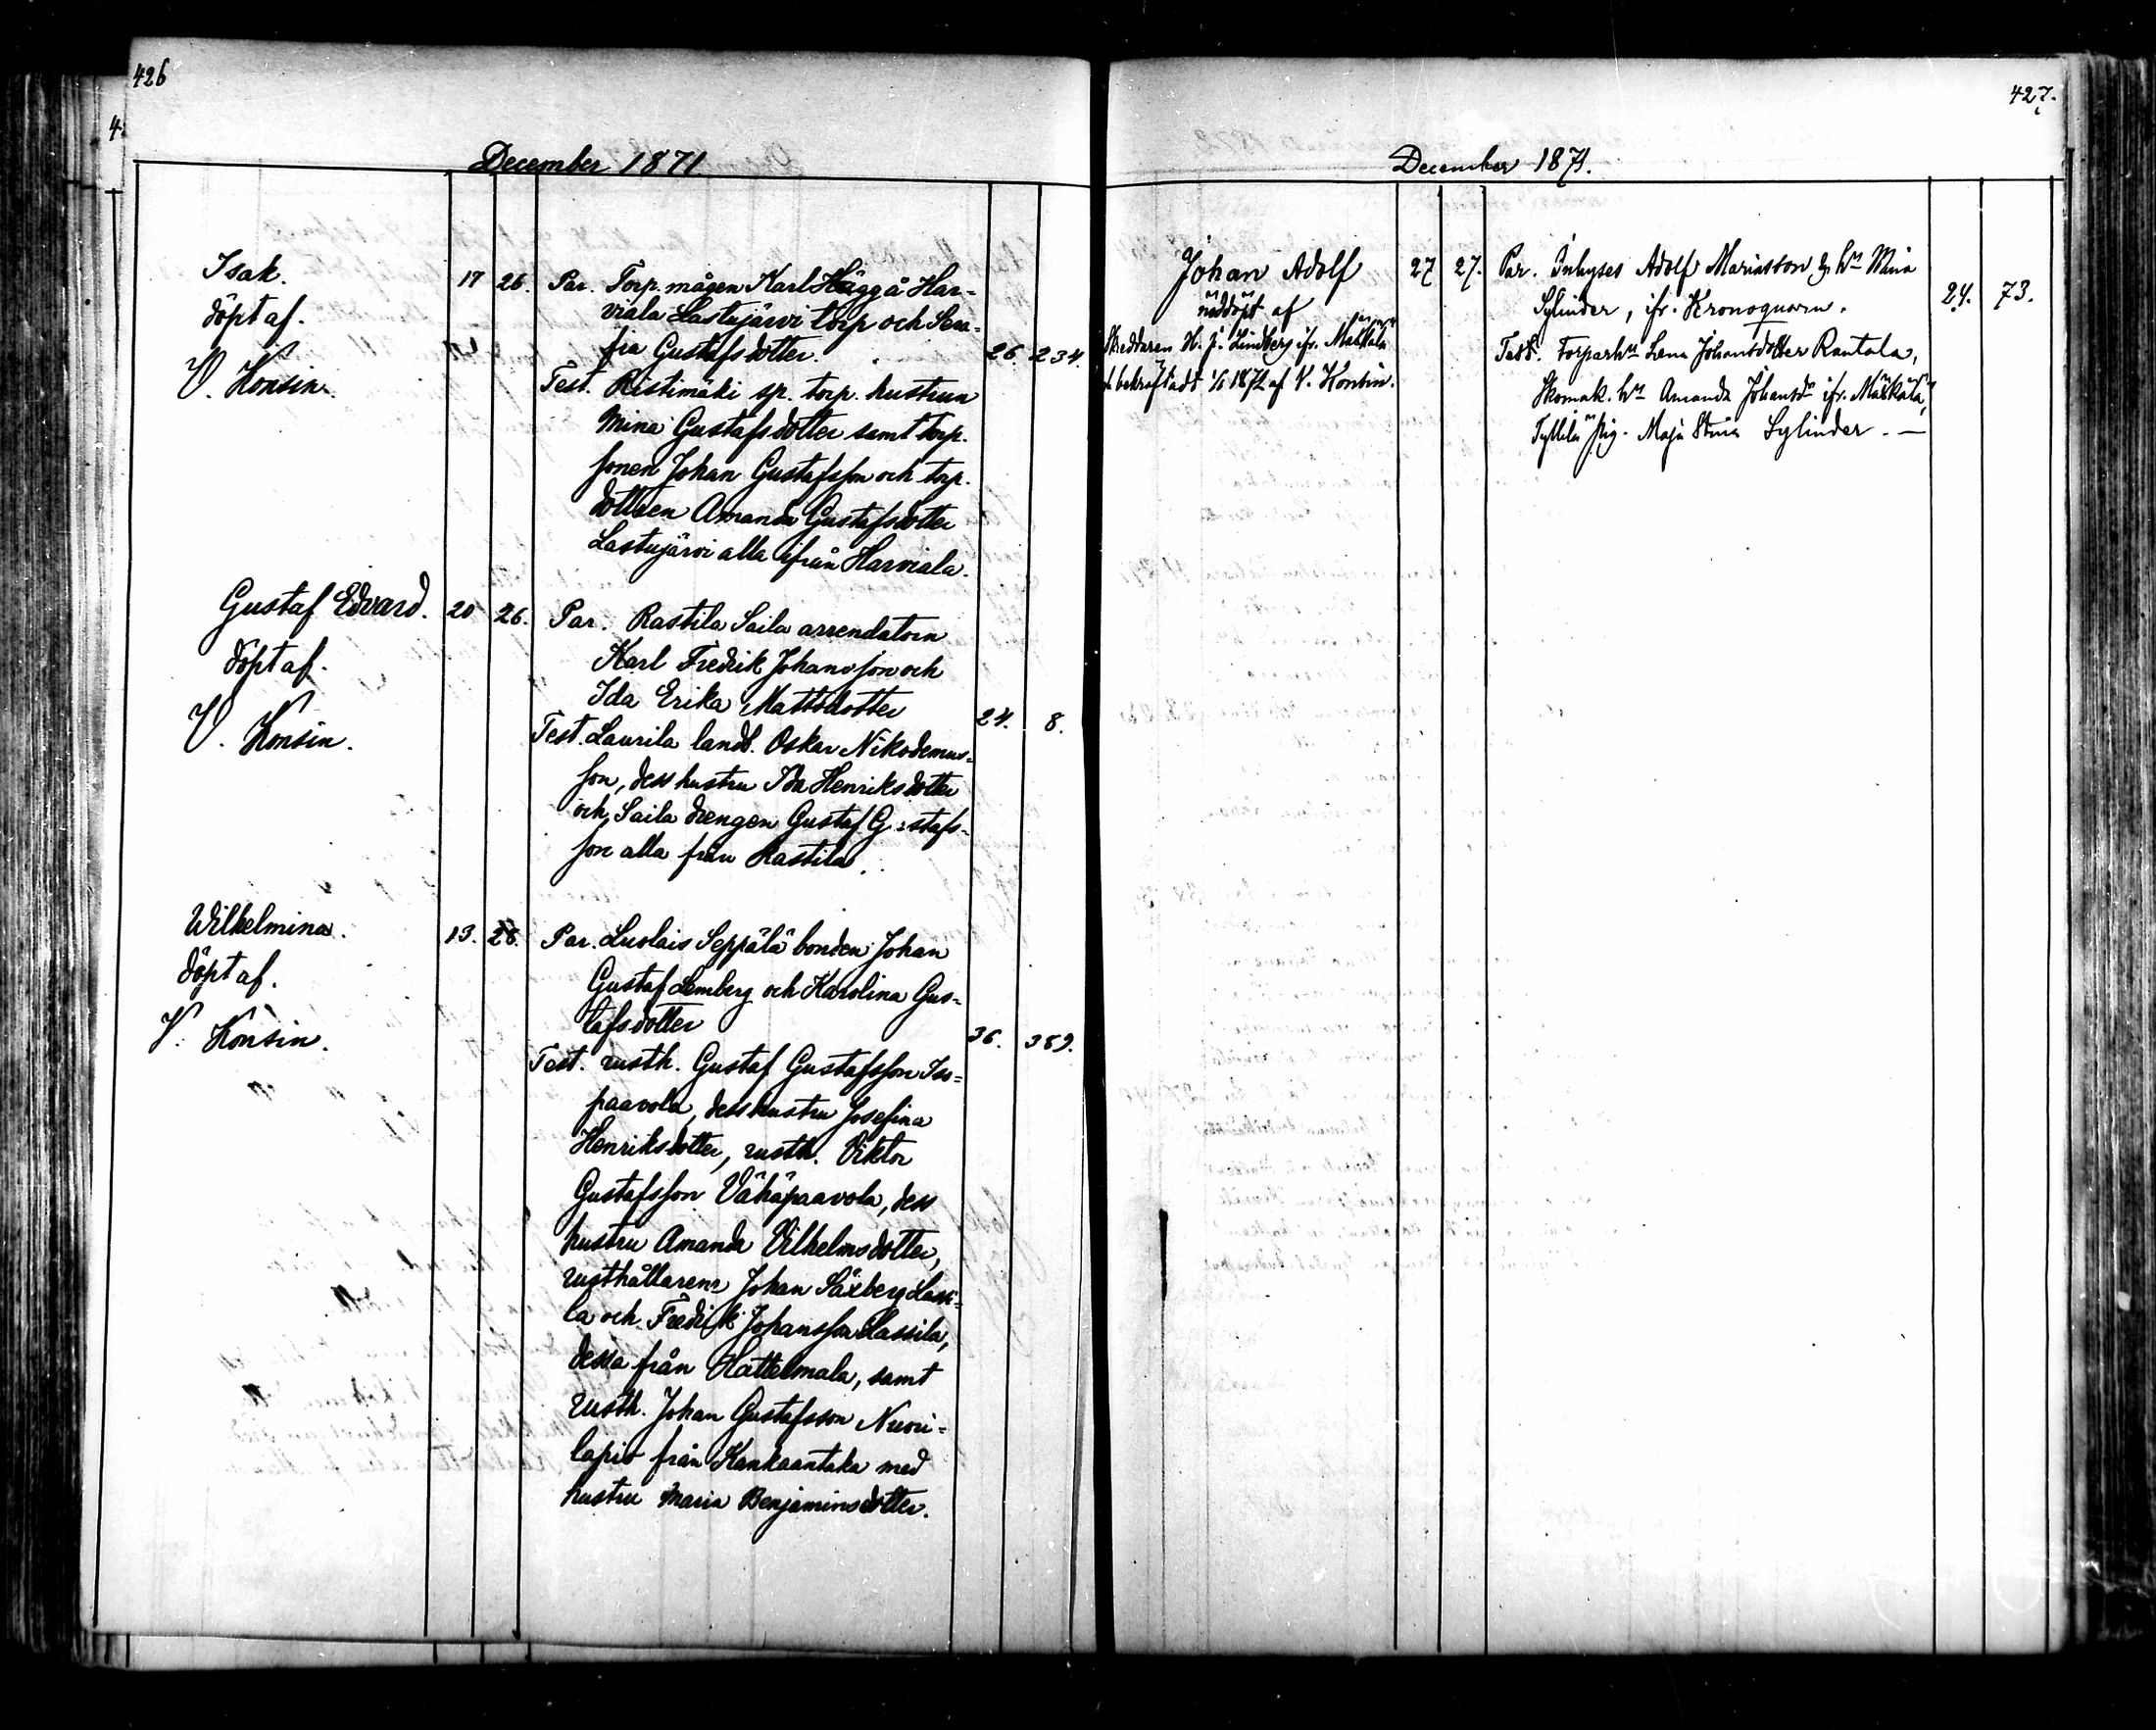 426
December 1871
Isak.
döpt af.
V. Konsin.
17 26.
Par. Torp. mågen Karl Hägg å Har-
viala Lastujärvi torp och Sera-
fia Gustafsdotter.
26. 234.
Test. Ristimäki sp. torp. hustrun
Mina Gustafsdotter samt torp.
sonen Johan Gustafsson och torp.
dottren Amanda Gustafsdotter
Lastujärvi alla ifrån Harviala.
Gustaf Edvard.
döpt af.
V. Konsin.
20 26.
Par. Rastila Saila arrendatorn
Karl Fredrik Johansson och
Ida Erika Mattsdotter
24. 8.
Test. Laurila landb. Oskar Nikodemus-
son, dess hustru Ida Henriksdotter
och Saila drengen Gustaf Gustafs-
son alla från Rastila.
Wilhelmina.
döpt af.
V. Konsin.
13. 26.
Par. Luolais Seppälä bonden Johan
Gustaf Lemberg och Karolina Gus-
tafsdotter
36. 389.
Test. rusth. Gustaf Gustafsson Iso-
paavola, dess hustru Josefina
Henriksdotter, rusth. Viktor
Gustafsson Vähäpaavola, dess
hustru Amanda Vilhelmsdotter,
rusthållarene Johan Säxberg Lassi-
la och Fredrik Johansson Lassila,
dessa från Hattelmala, samt
rusth. Johan Gustafsson Nuori-
lapio från Kankaantaka med
hustru Maria Benjaminsdotter.
427.
December 1871.
Johan Adolf
nöddöpt af
Skreddaren H. J. Lindberg ifr. Mäskälä
bekräftadt 1/1 1872 af V. Konsin.
27 27.
Par. Inhyses Adolf Mariasson & hn Mina
Sylinder, ifr. Kronoquarn.
24. 73.
Test. Torparhn Lena Johansdotter Rantala,
Skomak. hn Amanda Johansdr ifr. Mäskälä,
pig. Maja Stina Sylinder. —